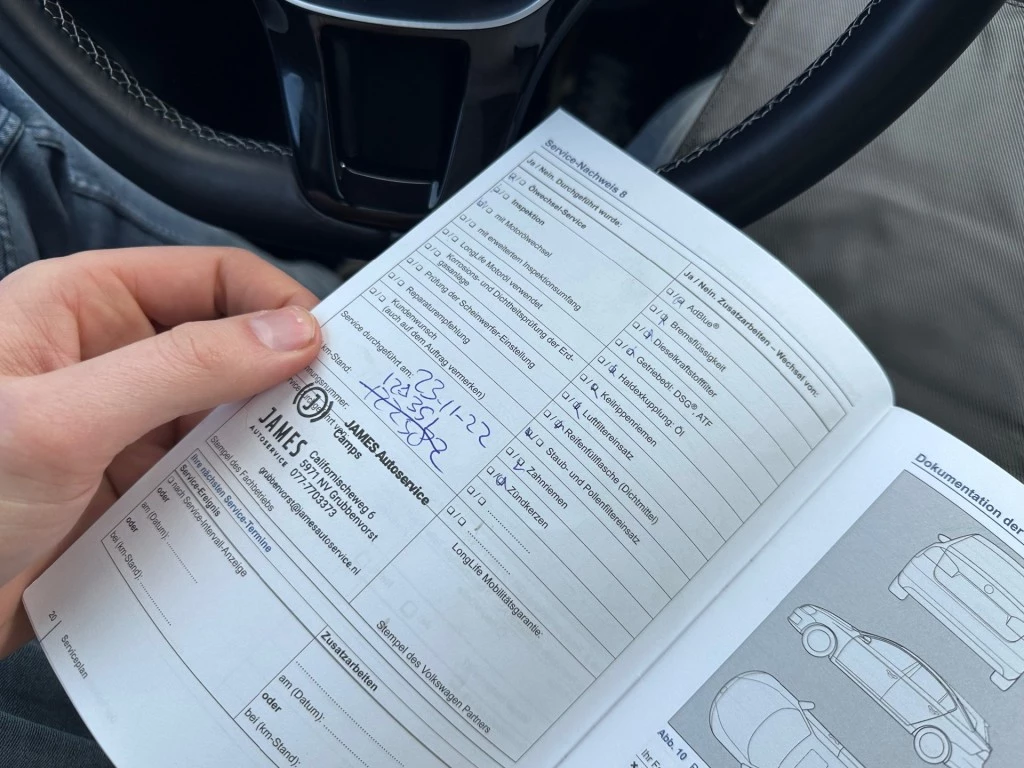 Service-Nachweis 8
Ja / Nein. Durchgeführt wurde:
Ölwechsel-Service
Inspektion
mit Motorölwechsel
mit erweitertem Inspektionsumfang
LongLife Motoröl verwendet
Korrosions- und Dichtheitsprüfung der Erd-
gasanlage
Prüfung der Scheinwerfer-Einstellung
Reparaturempfehlung
Kundenwunsch
(auch auf dem Auftrag vermerken)
Service durchgeführt am: 23-11-22
km-Stand:
JAMES Autoservice
Camps
Californischeweg 6
5971 NV Grubbenvorst
077-7703373
grubbenvorst@jamesautoservice.nl
JAMES
AUTOSERVICE
Stempel des Fachbetriebs
Ja / Nein. Zusatzarbeiten – Wechsel von:
AdBlue®
Bremsflüssigkeit
Dieselkraftstofffilter
Getriebeöl: DSG®, ATF
Haldexkupplung: Öl
Keilrippenriemen
Luftfiltereinsatz
Reifenfüllflasche (Dichtmittel)
Staub- und Pollenfiltereinsatz
Zahnriemen
Zündkerzen
LongLife Mobilitätsgarantie:
Stempel des Volkswagen Partners
Ihre nächsten Service-Termine
Service-Ereignis
nach Service-Intervall-Anzeige
oder
am (Datum):
oder
bei (km-Stand):
Zusatzarbeiten
am (Datum):
oder
bei (km-Stand):
20 Serviceplan
Dokumentation der
Abb. 10